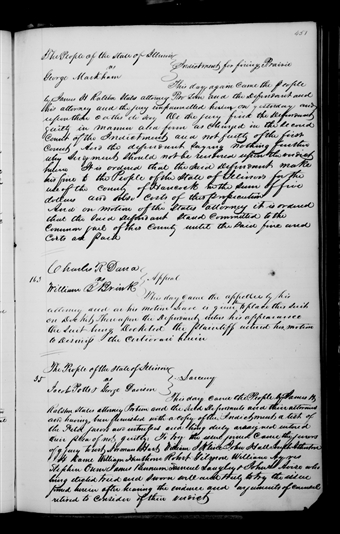 451
The People of the State of Illinois
vs Indictment for firing Prairie
George Markham
This day again came the People
by James H Ralston States attorney Pro Tem and the Defendant and
his attorney and the jury empannelled herein on yesterday and
upon their oaths do say We the jury find the Defendant
guilty in manner and form as charged in the second
Count of the Indictment and not guilty of the first
Count, And the defendant saying nothing further
why Judgment should not be rendered upon the verdict
herein It is ordered that the said defendant make
his fine to the People of the State of Illinois for the
use of the County of Hancock in the sum of five
dollars and also Costs of this prosecution
And on motion of the States attorney it is ordered
that the said defendant stand Committed to the
Common jail of this County until the said fine and
Costs are paid
Charles R Dana
163 vs Appeal
William B Brink
This day came the appellee by his
attorney and on his motion leave is given to place this suit
on Docket Thereupon the Defendant enters his appearance
the suit being Docketed the Plaintiff entered his motion
to dismiss the Certiorari herein
The People of the State of Illinois
35 vs Larceny
Jacob Potter George Dawson
This day came the People by James H
Ralston States attorney Protem and the said Defendants and their attorneys
and having been furnished with a copy of the Indictment a list of
the Petit jurors and witnesses and being duly arraigned entered
their plea of not guilty To try the issue joined Came the jurors
of a jury to wit,
William Hawthorn Robert
Stephen Owen James Samuel
being elected tried and sworn well and truly to try the issue
joined herein after hearing the evidence and arguments of counsel
retired to Consider of their verdict